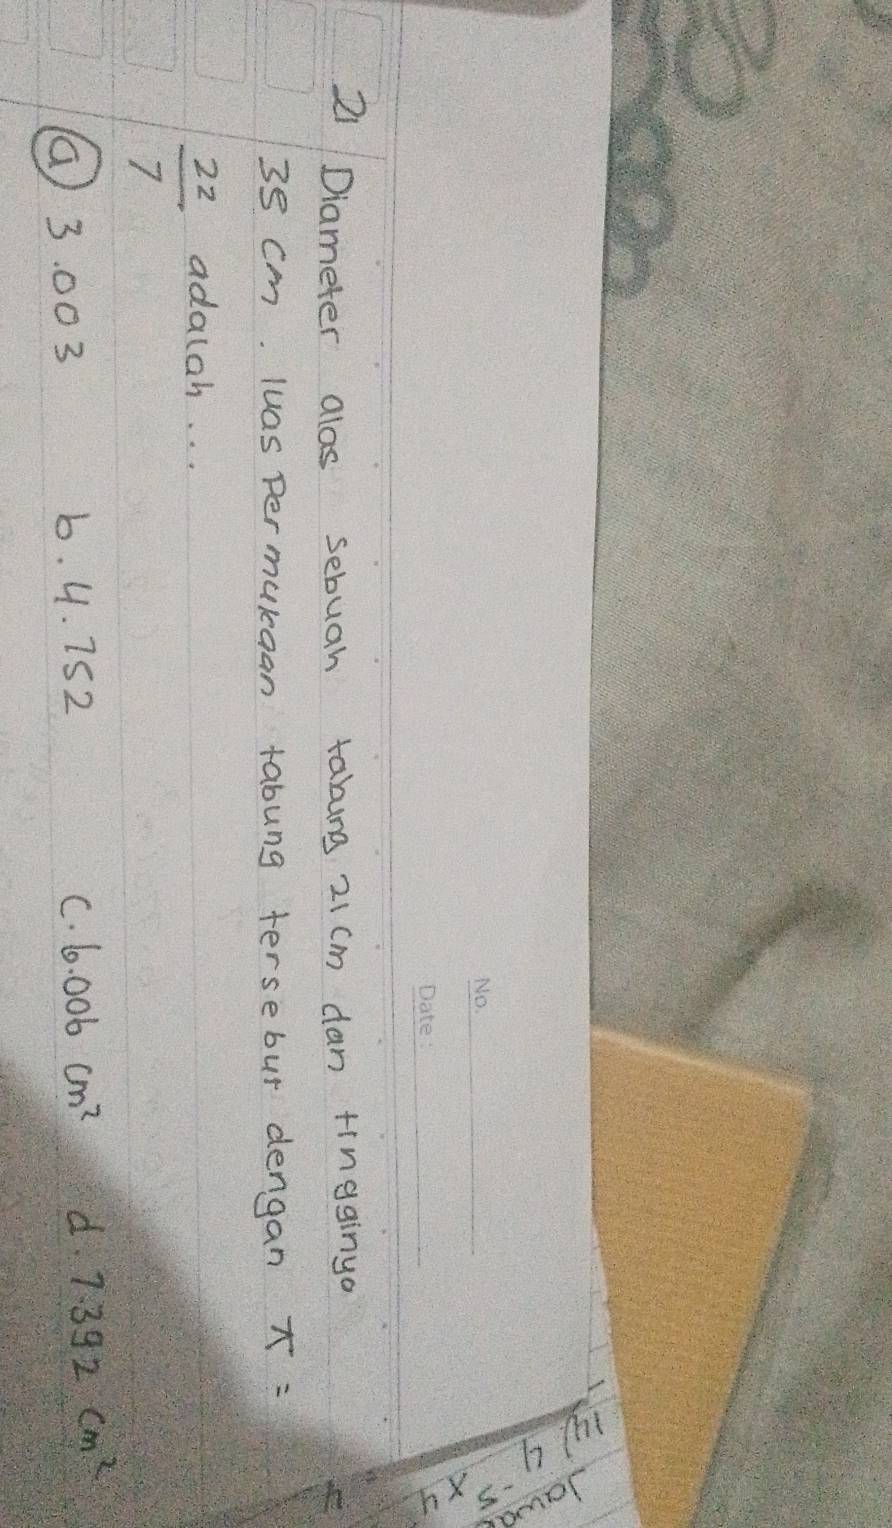 No.
Date:
21 Diameter alas sebuah tabung 21 cm dan tingginya
35 cm. luas permukaan tabung tersebut dengan π =
22/7 adalah...
a 3.003 b. 4.752 c. 6.006 cm² d. 7.392 cm²